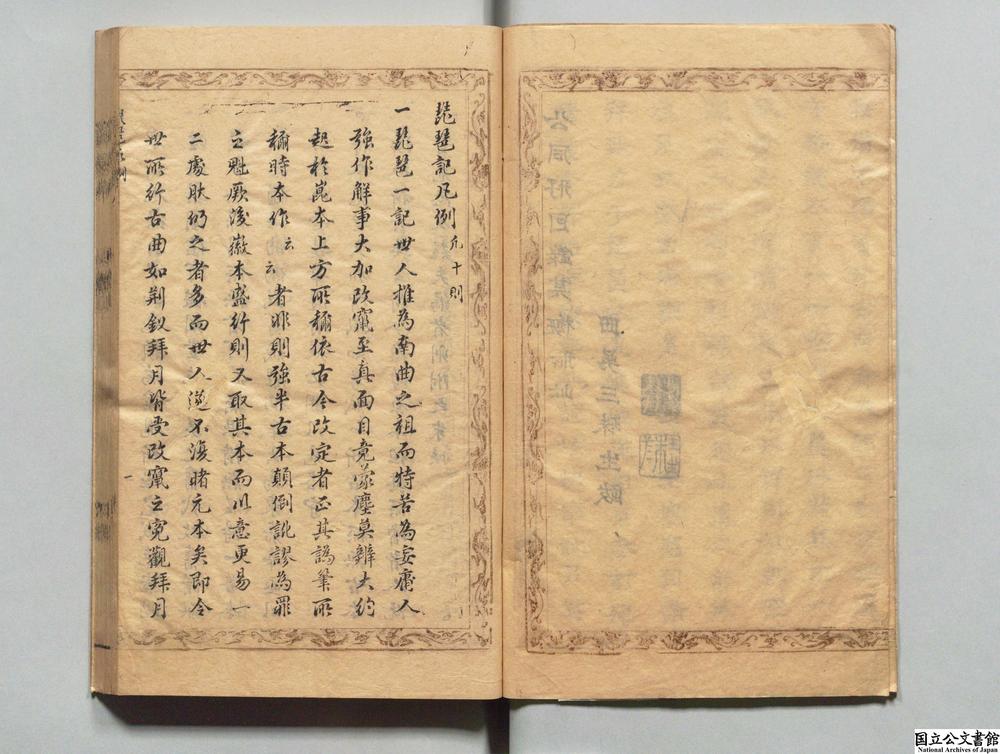 琵琶記凡例 凡十則
一琵琶一記世人推為南曲之祖而特苦為妄庸人
強作解事大加改竄至真面目竟蒙塵莫辨大約
起於崑本上方所稱依古今改定者正其譌筆所
稱時本作云云者非則強半古本顛倒訛謬為罪
之魁厥後徽本盛行則又取其本而以意更易一
二處肰仍之者多而世人遂不復睹元本矣即今
世所行古曲如荆釵拜月皆受改竄之寃觀拜月
一
国立公文書館
National Archives of Japan